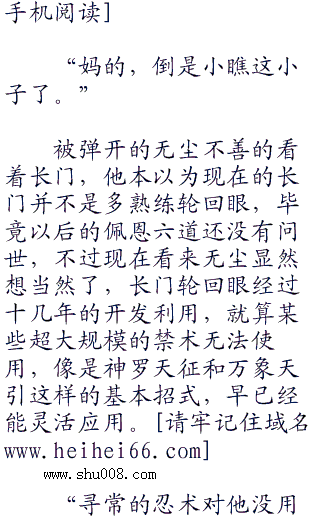 手机阅读]
“妈的，倒是小瞧这小
子了。”
被弹开的无尘不善的看
着长门，他本以为现在的长
门并不是多熟练轮回眼，毕
竟以后的佩恩六道还没有问
世，不过现在看来无尘显然
想当然了，长门轮回眼经过
十几年的开发利用，就算某
些超大规模的禁术无法使
用，像是神罗天征和万象天
引这样的基本招式，早已经
能灵活应用。[请牢记住域名
www.heihei66.com]
www.shu008.com
“寻常的忍术对他没用